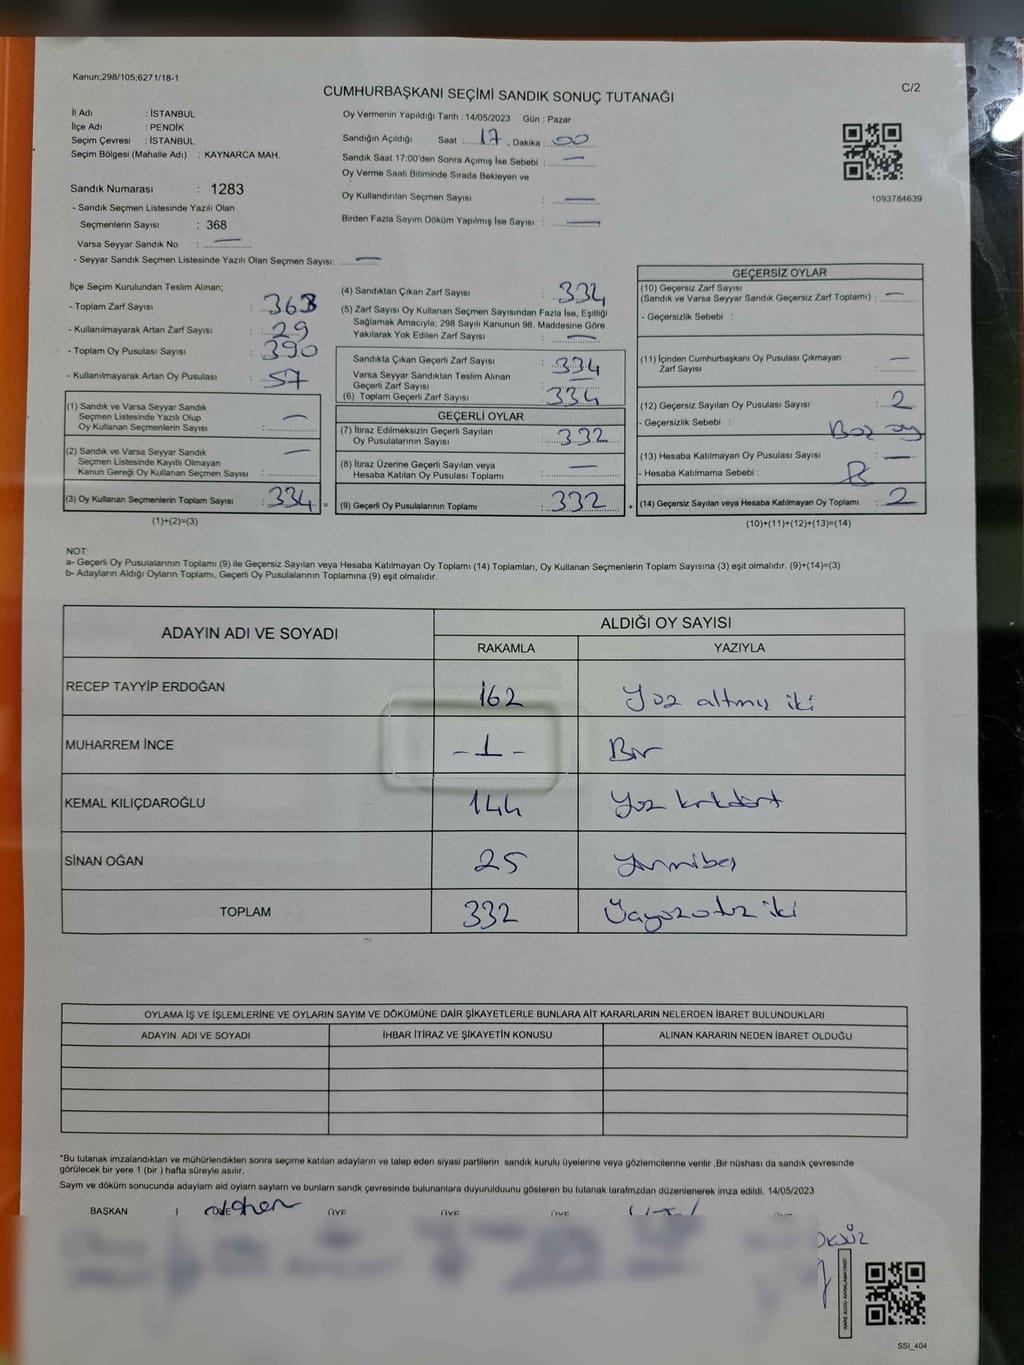 Kanun;298/105;6271/18-1
CUMHURBAŞKANI SEÇİMİ SANDIK SONUÇ TUTANAĞI
C/2
İl Adı : İSTANBUL
İlçe Adı : PENDİK
Seçim Çevresi : İSTANBUL
Seçim Bölgesi (Mahalle Adı) : KAYNARCA MAH.
Sandık Numarası : 1283
- Sandık Seçmen Listesinde Yazılı Olan
Seçmenlerin Sayısı : 368
Varsa Seyyar Sandık No : —
- Seyyar Sandık Seçmen Listesinde Yazılı Olan Seçmen Sayısı: —
Oy Vermenin Yapıldığı Tarih : 14/05/2023 Gün : Pazar
Sandığın Açıldığı Saat : 17 , Dakika : 00
Sandık Saat 17:00'den Sonra Açımış İse Sebebi : —
Oy Verme Saati Bitiminde Sırada Bekleyen ve
Oy Kullandırılan Seçmen Sayısı : —
Birden Fazla Sayım Döküm Yapılmış İse Sayısı : —
1093784639
İlçe Seçim Kurulundan Teslim Alınan;
- Toplam Zarf Sayısı : 363
- Kullanılmayarak Artan Zarf Sayısı : 29
- Toplam Oy Pusulası Sayısı : 390
- Kullanılmayarak Artan Oy Pusulası : 57
(1) Sandık ve Varsa Seyyar Sandık
Seçmen Listesinde Yazılı Olup
Oy Kullanan Seçmenlerin Sayısı : —
(2) Sandık ve Varsa Seyyar Sandık
Seçmen Listesinde Kayıtlı Olmayan
Kanun Gereği Oy Kullanan Seçmen Sayısı : —
(3) Oy Kullanan Seçmenlerin Toplam Sayısı : 334 =
(1)+(2)=(3)
(4) Sandıktan Çıkan Zarf Sayısı : 334
(5) Zarf Sayısı Oy Kullanan Seçmen Sayısından Fazla İse, Eşitliği
Sağlamak Amacıyla; 298 Sayılı Kanunun 98. Maddesine Göre
Yakılarak Yok Edilen Zarf Sayısı : —
Sandıkta Çıkan Geçerli Zarf Sayısı : 334
Varsa Seyyar Sandıktan Teslim Alınan
Geçerli Zarf Sayısı : —
(6) Toplam Geçerli Zarf Sayısı : 334
GEÇERLİ OYLAR
(7) İtiraz Edilmeksizin Geçerli Sayılan
Oy Pusulalarının Sayısı : 332
(8) İtiraz Üzerine Geçerli Sayılan veya
Hesaba Katılan Oy Pusulası Toplamı : —
(9) Geçerli Oy Pusulalarının Toplamı : 332 +
GEÇERSİZ OYLAR
(10) Geçersiz Zarf Sayısı
(Sandık ve Varsa Seyyar Sandık Geçersiz Zarf Toplamı) : —
- Geçersizlik Sebebi :
(11) İçinden Cumhurbaşkanı Oy Pusulası Çıkmayan
Zarf Sayısı : —
(12) Geçersiz Sayılan Oy Pusulası Sayısı : 2
- Geçersizlik Sebebi : Boz oy
(13) Hesaba Katılmayan Oy Pusulası Sayısı : —
- Hesaba Katılmama Sebebi :
(14) Geçersiz Sayılan veya Hesaba Katılmayan Oy Toplamı : 2
(10)+(11)+(12)+(13)=(14)
NOT:
a- Geçerli Oy Pusulalarının Toplamı (9) ile Geçersiz Sayılan veya Hesaba Katılmayan Oy Toplamı (14) Toplamları, Oy Kullanan Seçmenlerin Toplam Sayısına (3) eşit olmalıdır. (9)+(14)=(3)
b- Adayların Aldığı Oyların Toplamı, Geçerli Oy Pusulalarının Toplamına (9) eşit olmalıdır.
ADAYIN ADI VE SOYADI ALDIĞI OY SAYISI
RAKAMLA YAZIYLA
RECEP TAYYİP ERDOĞAN 162 Yüz altmış iki
MUHARREM İNCE - 1 - Bir
KEMAL KILIÇDAROĞLU 144 Yüz kırkdört
SİNAN OĞAN 25 Yirmibeş
TOPLAM 332 Üçyüzotuz iki
OYLAMA İŞ VE İŞLEMLERİNE VE OYLARIN SAYIM VE DÖKÜMÜNE DAİR ŞİKAYETLERLE BUNLARA AİT KARARLARIN NELERDEN İBARET BULUNDUKLARI
ADAYIN ADI VE SOYADI İHBAR İTİRAZ VE ŞİKAYETİN KONUSU ALINAN KARARIN NEDEN İBARET OLDUĞU
*Bu tutanak imzalandıktan ve mühürlendikten sonra seçime katılan adayların ve talep eden siyasi partilerin sandık kurulu üyelerine veya gözlemcilerine verilir .Bir nüshası da sandık çevresinde
görülecek bir yere 1 (bir ) hafta süreyle asılır.
Sayım ve döküm sonucunda adaylarn ald oylarn saylarn ve bunlarn sandk çevresinde bulunanlara duyurulduunu gösteren bu tutanak tarafmzdan düzenlenerek imza edildi. 14/05/2023
BAŞKAN ÜYE ÜYE ÜYE ÜYE
ÖKSÜZ
SSI_404